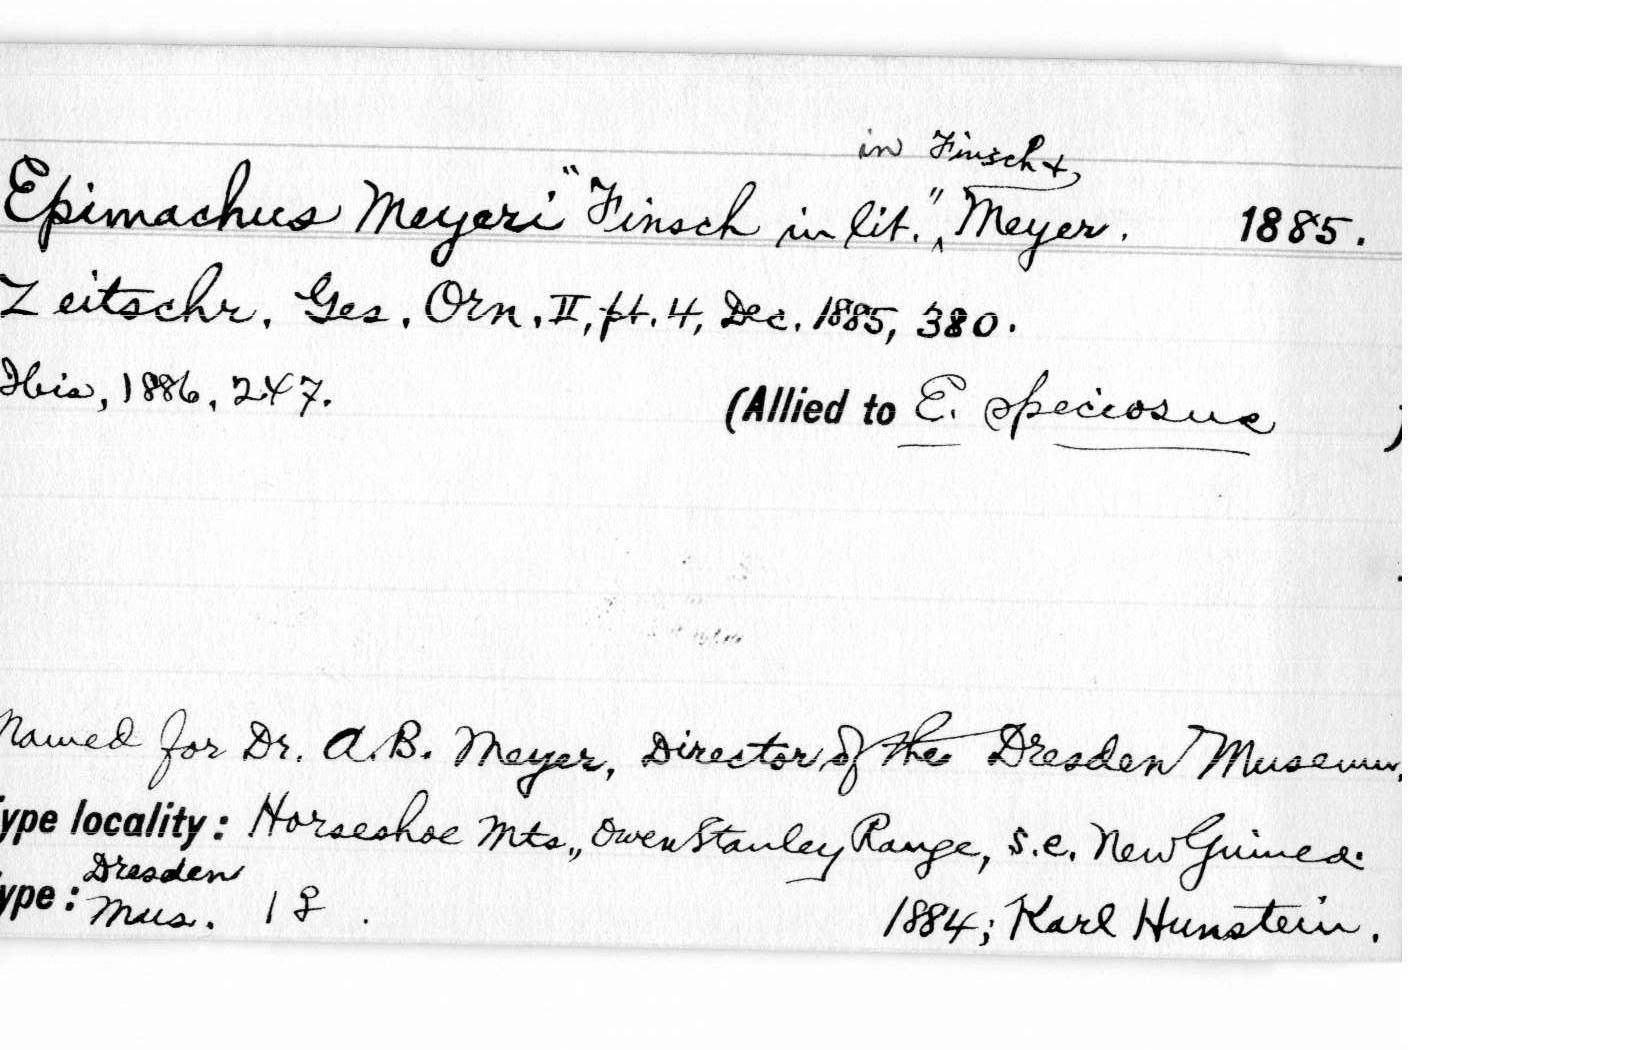 in Finsch &
Epimachus Meyeri "Finsch in lit.", ^ Meyer. 1885.
Zeitschr. Ges. Orn. II, pt. 4, Dec. 1885, 380.
Ibis, 1886, 247. (Allied to E. speciosus )
Named for Dr. A.B. Meyer, Director of the Dresden Museum,
ype locality: Horseshoe Mts., Owen Stanley Range, s.e. New Guinea.
Dresden
ype: Mus. 1 ♀ . 1884; Karl Hunstein.